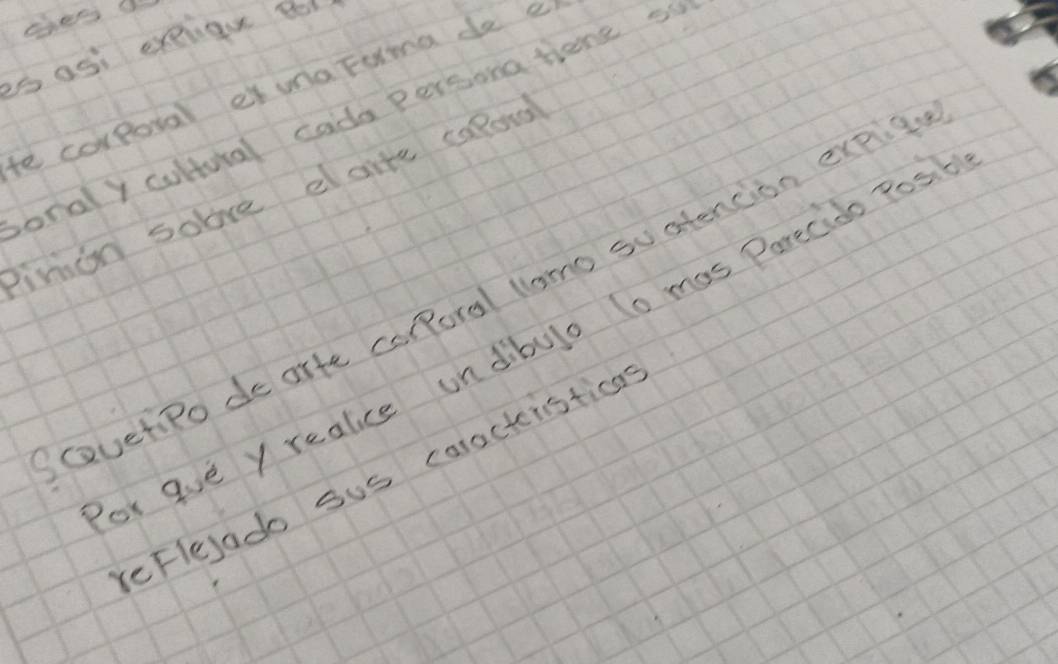 es asi explique
te corporal es una Forma de
sonal y cultural cada Persona tiene
Pinión sobre el arte caporal
5 ¿Que tiPo de arte corPoral llamo su atención expliqué
Por qué y realice un dibujo lo mas Parecido Posible
reFlejado sus caracteristicas